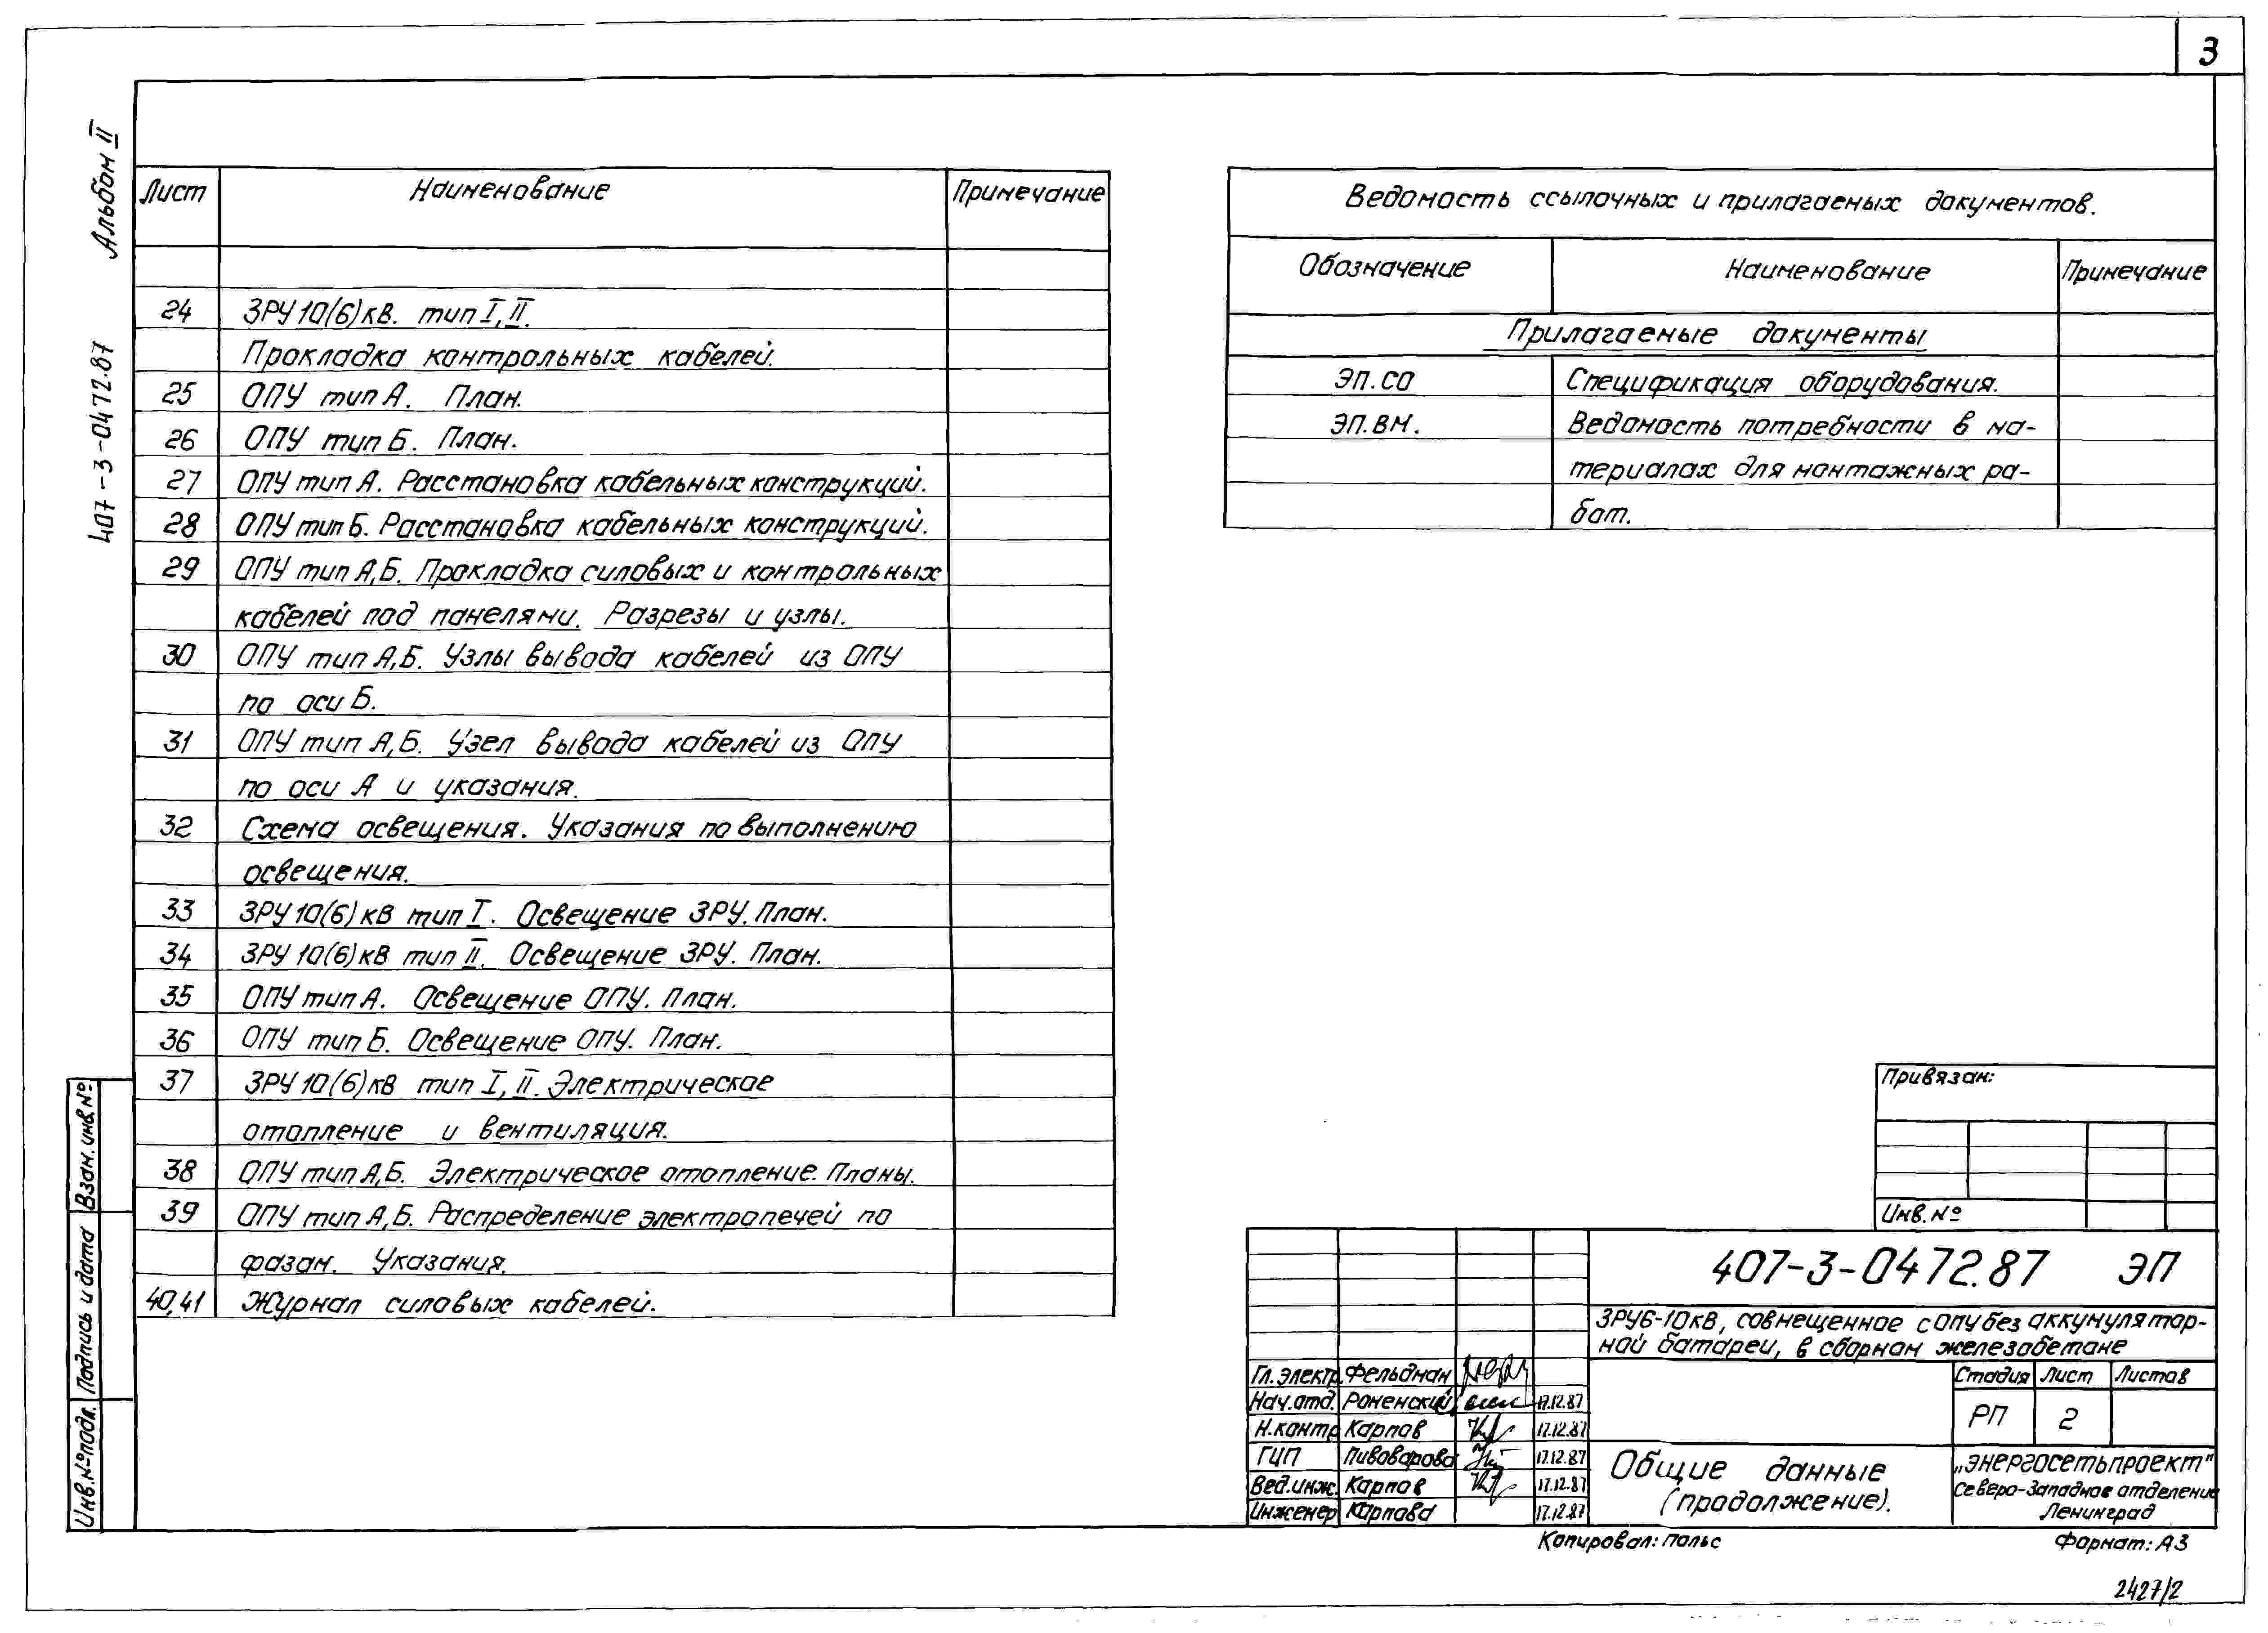 3
Альбом II
407-3-0472.87
Лист Наименование Примечание
24 ЗРУ 10(6)кв. тип I, II.
Прокладка контрольных кабелей.
25 ОПУ тип А. План.
26 ОПУ тип Б. План.
27 ОПУ тип А. Расстановка кабельных конструкций.
28 ОПУ тип Б. Расстановка кабельных конструкций.
29 ОПУ тип А,Б. Прокладка силовых и контрольных
кабелей под панелями. Разрезы и узлы.
30 ОПУ тип А,Б. Узлы вывода кабелей из ОПУ
по оси Б.
31 ОПУ тип А,Б. Узел вывода кабелей из ОПУ
по оси А и указания.
32 Схема освещения. Указания по выполнению
освещения.
33 ЗРУ 10(6)кв тип I. Освещение ЗРУ. План.
34 ЗРУ 10(6)кв тип II. Освещение ЗРУ. План.
35 ОПУ тип А. Освещение ОПУ. План.
36 ОПУ тип Б. Освещение ОПУ. План.
37 ЗРУ 10(6)кв тип I, II. Электрическое
отопление и вентиляция.
38 ОПУ тип А,Б. Электрическое отопление. Планы.
39 ОПУ тип А,Б. Распределение электропечей по
фазам. Указания.
40,41 Журнал силовых кабелей.
Ведомость ссылочных и прилагаемых документов.
Обозначение Наименование Примечание
Прилагаемые документы
ЭП.СО Спецификация оборудования.
ЭП.ВМ. Ведомость потребности в ма-
териалах для монтажных ра-
бот.
Привязан:
Инв.№
407-3-0472.87 ЭП
ЗРУ6-10кв, совмещенное с ОПУ без аккумулятор-
ной батареи, в сборном железобетоне
Гл.электр. Фельдман
Нач.отд. Роменский 17.12.87
Н.контр Карпов 17.12.87
ГИП Пивоварова 17.12.87
Вед.инж. Карпов 17.12.87
Инженер Карпова 17.12.87
Стадия Лист Листов
РП 2
Общие данные
(продолжение).
„Энергосетьпроект"
Северо-Западное отделение
Ленинград
Взам.инв.№
Подпись и дата
Инв.№подл.
Копировал: Польс
Формат: А3
2427/2